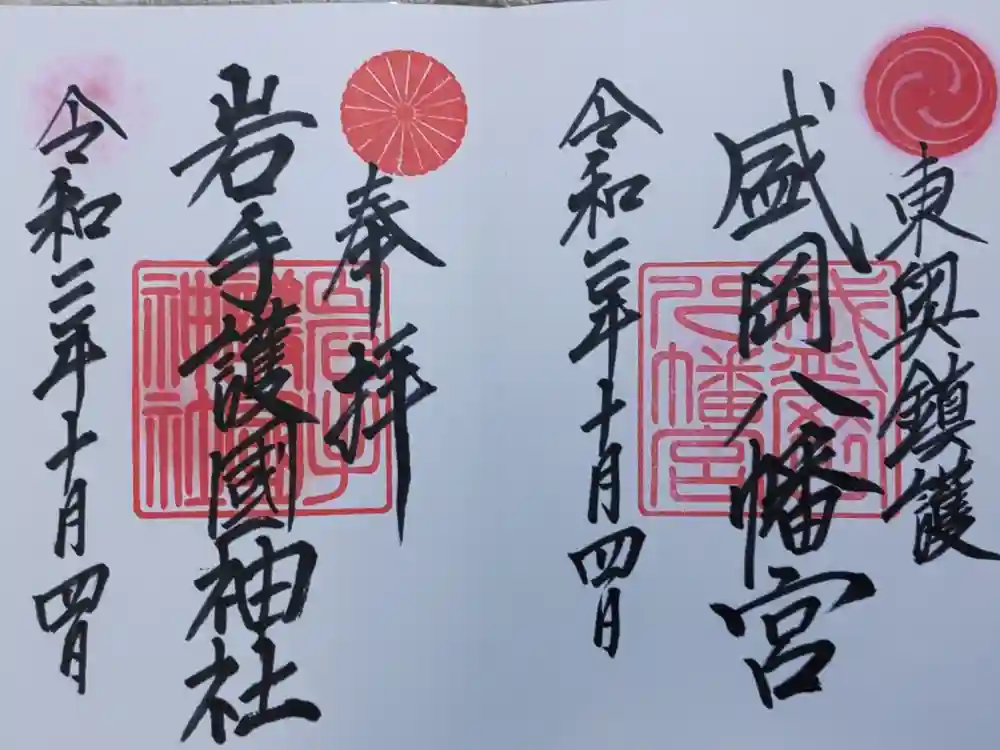 東奥鎮護
盛岡八幡宮
盛岡八幡宮
令和二年十月四日
奉拝
岩手護國神社
岩手護國神社
令和二年十月四日